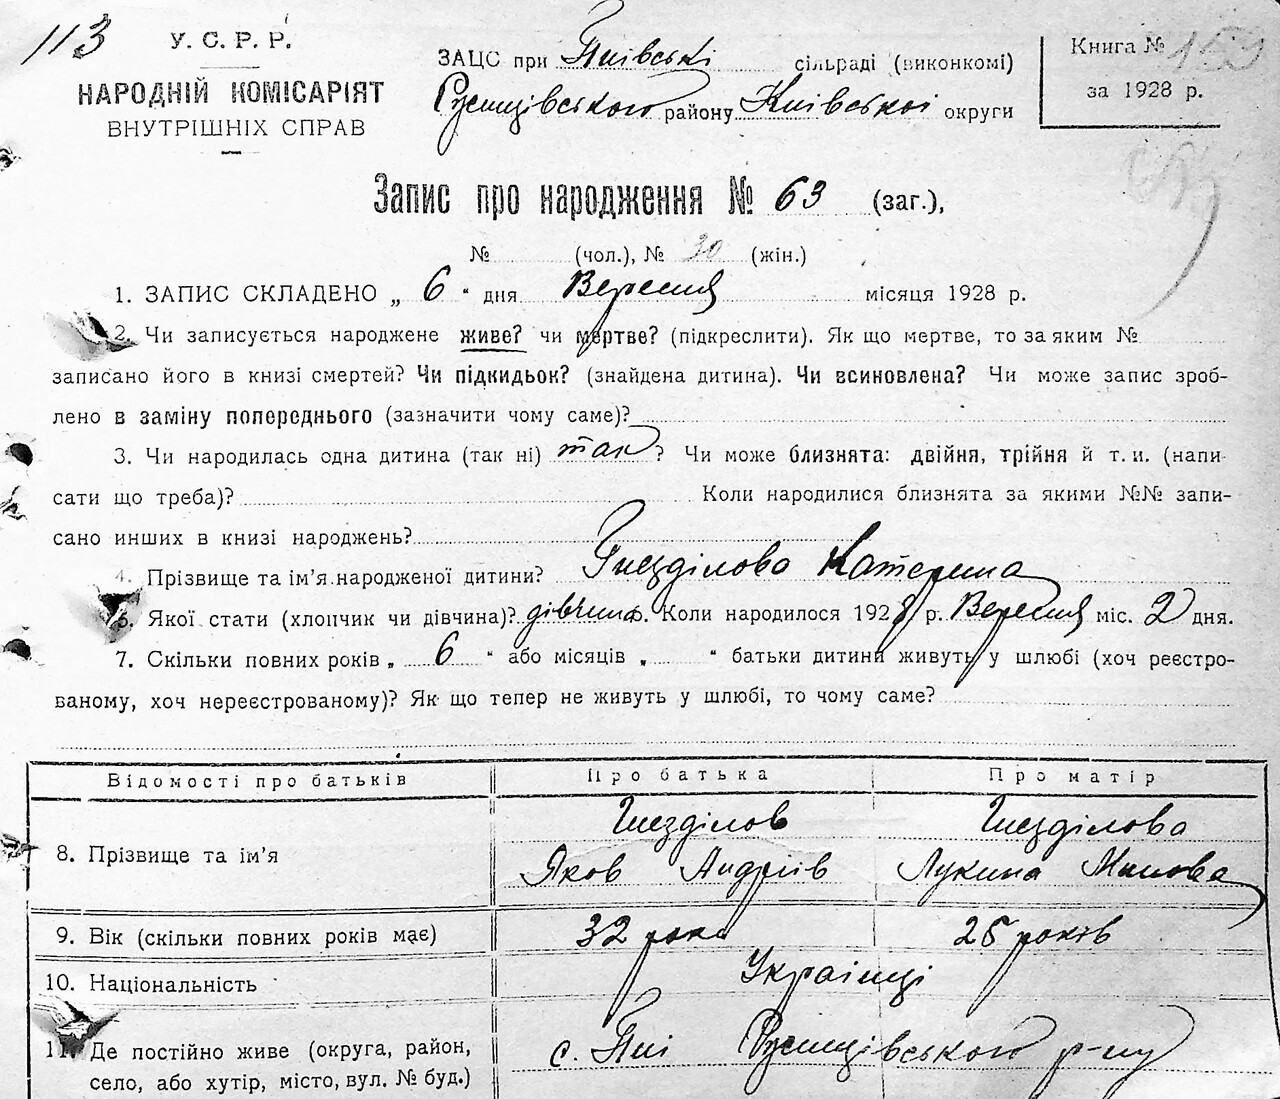 113
У. С. Р. Р.
НАРОДНІЙ КОМІСАРІЯТ
ВНУТРІШНІХ СПРАВ
ЗАЦС при Пиівські сільраді (виконкомі)
району Київської округи
Книга № 159
за 1928 р.
Запис про народження № 63 (заг.),
№ (чол.), № 30 (жін.)
1. ЗАПИС СКЛАДЕНО „ 6 “ дня Вересня місяця 1928 р.
2. Чи записується народжене живе? чи мертве? (підкреслити). Як що мертве, то за яким №
записано його в книзі смертей? Чи підкидьок? (знайдена дитина). Чи всиновлена? Чи може запис зроб-
лено в заміну попереднього (зазначити чому саме)?
3. Чи народилась одна дитина (так ні) так ? Чи може близнята: двійня, трійня й т. и. (напи
сати що треба)? Коли народилися близнята за якими №№ запи-
сано инших в книзі народжень?
4. Прізвище та ім’я народженої дитини? Гнезділова Катерина
6. Якої стати (хлопчик чи дівчина)? дівчина. Коли народилося 1928 р. Вересня міс. 2 дня.
7. Скільки повних років „ 6 “ або місяців „ “ батьки дитини живуть у шлюбі (хоч реєстро-
ваному, хоч нереєстрованому)? Як що тепер не живуть у шлюбі, то чому саме?
Відомості про батьків Про батька Про матір
Гнезділов Гнезділова
8. Прізвище та ім’я
Яков Андріїв Лукина
9. Вік (скільки повних років має) 32 роки 25 років
10. Національність Українці
11. Де постійно живе (округа, район, с. Пиі р-ну
село, або хутір, місто, вул. № буд.)